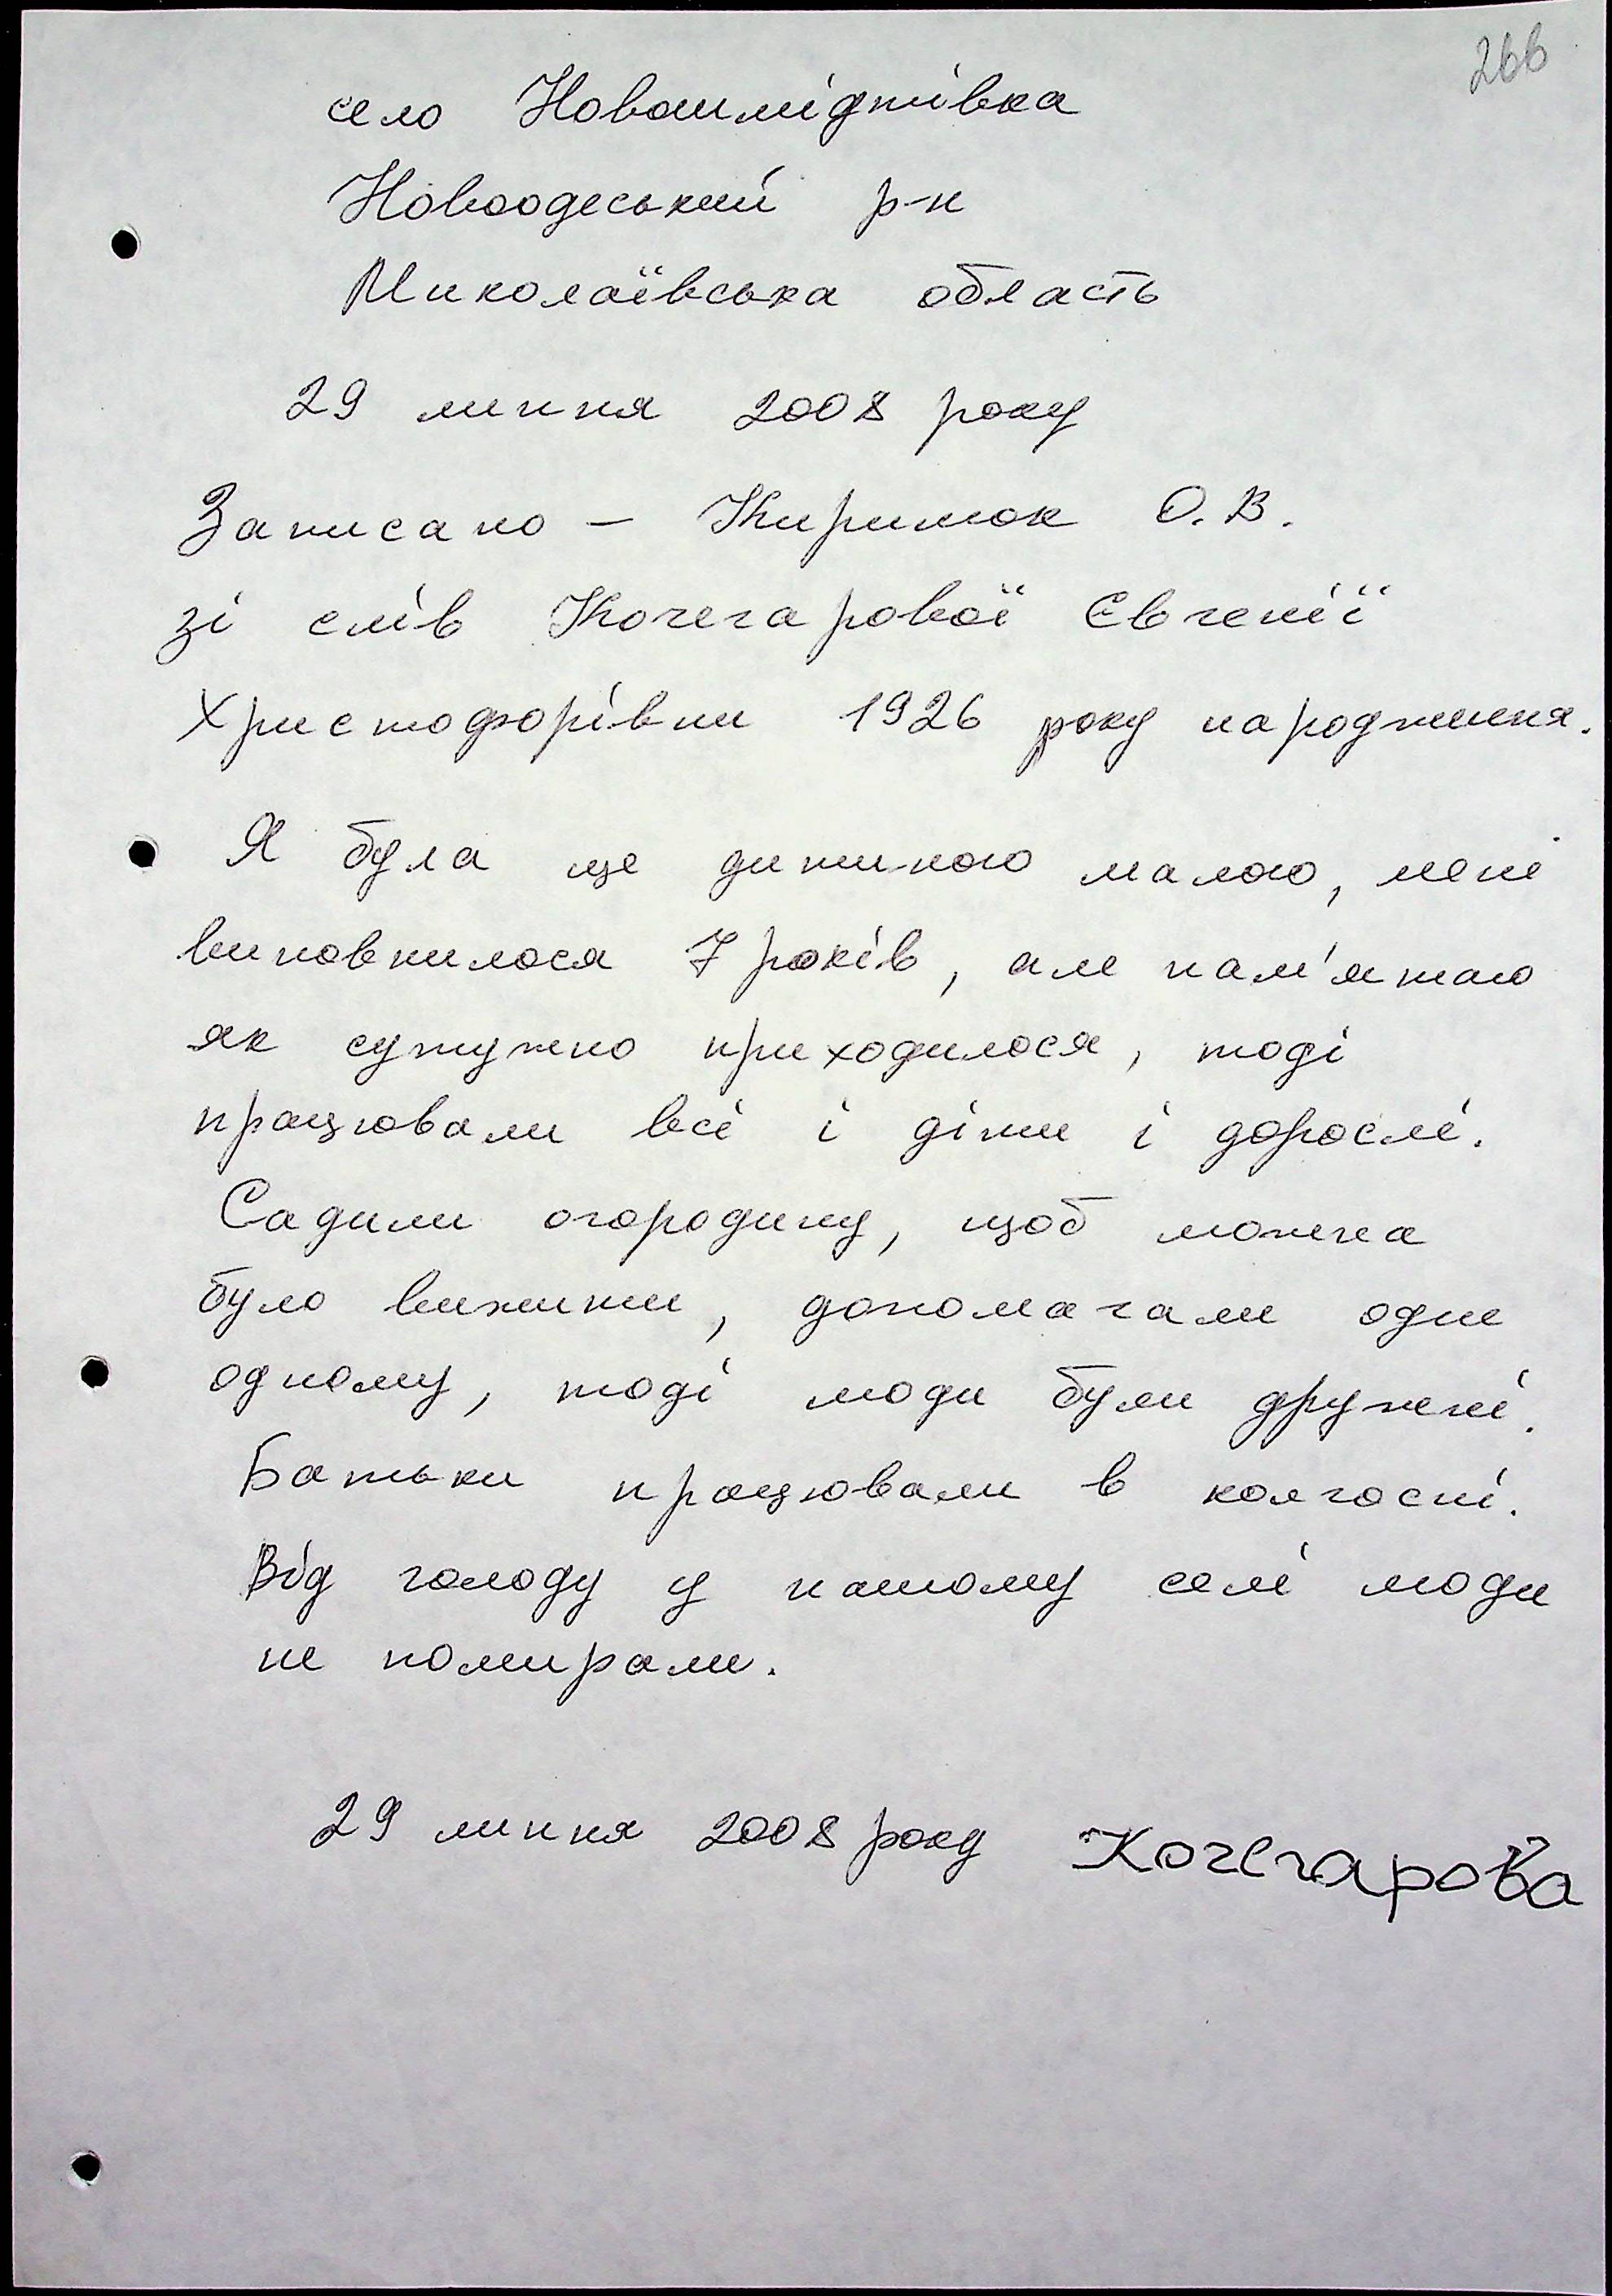 266
село Новошмідтівка
Новоодеський р-н
Миколаївська область
29 липня 2008 року
Записано – Кирилюк О.В.
зі слів Кочегарової Євгенії
Христофорівни 1926 року народження.
Я була ще дитиною малою, мені
виповнилося 7 років, але пам'ятаю
як сутужно приходилося, тоді
працювали всі і діти і дорослі.
Садили огородину, щоб можна
було вижити, допомагали одне
одному, тоді люди були дружні.
Батьки працювали в колгоспі.
Від голоду у нашому селі люди
не помирали.
29 липня 2008 року Кочегарова